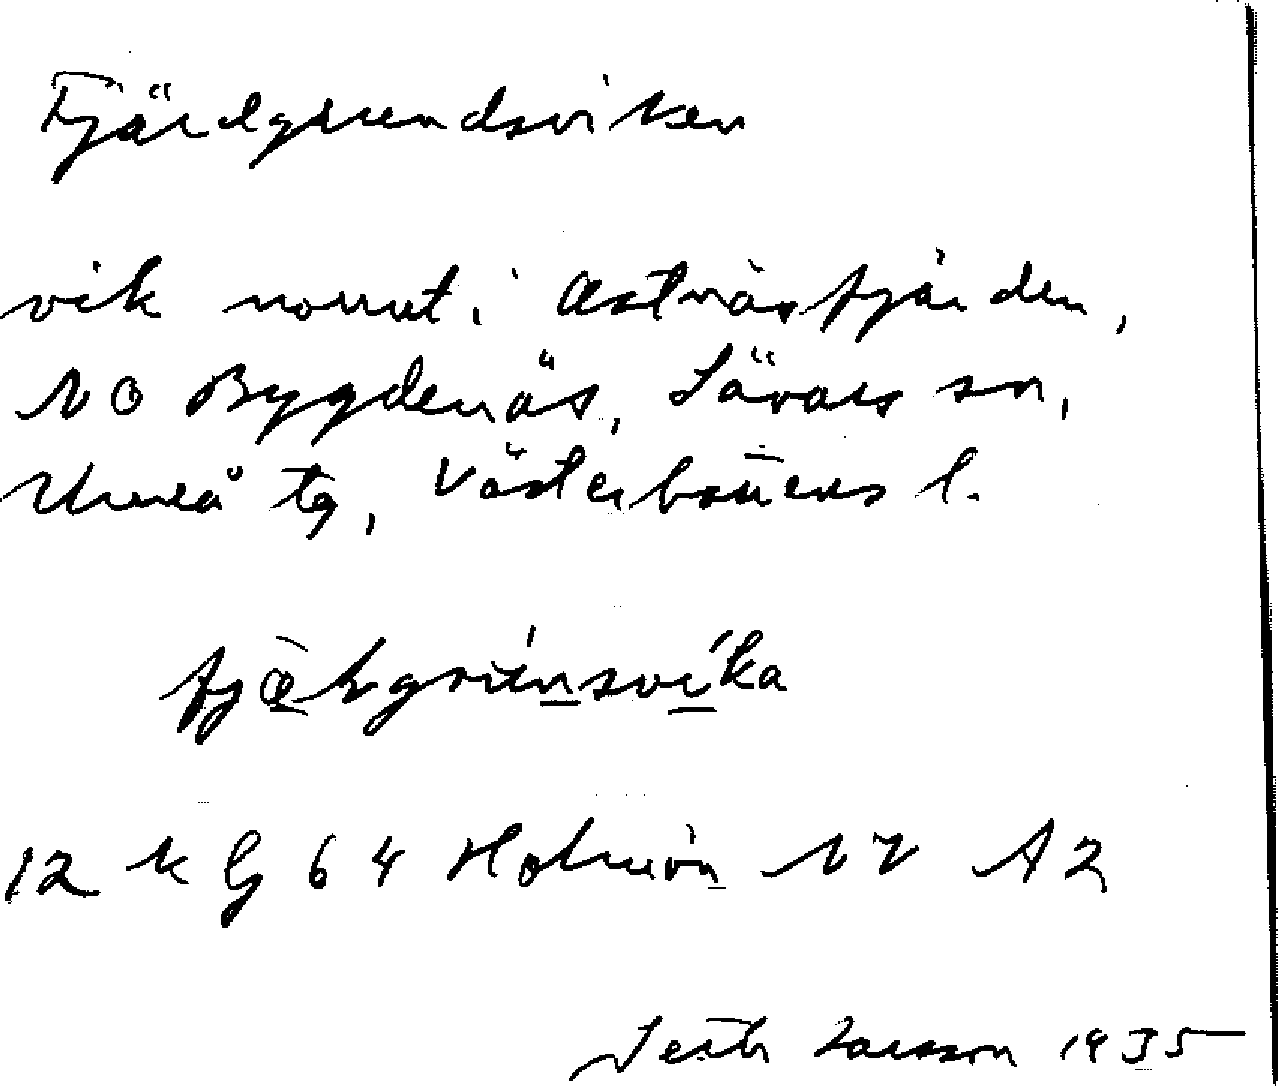 Fjärdgrundsviken
vik norrut i Östnäsfjärden,
NO Bygdenäs, Sävars sn,
Umeå tg, Västerbottens l.
12 k G 64 Holmön NV A2
Larsson 1935